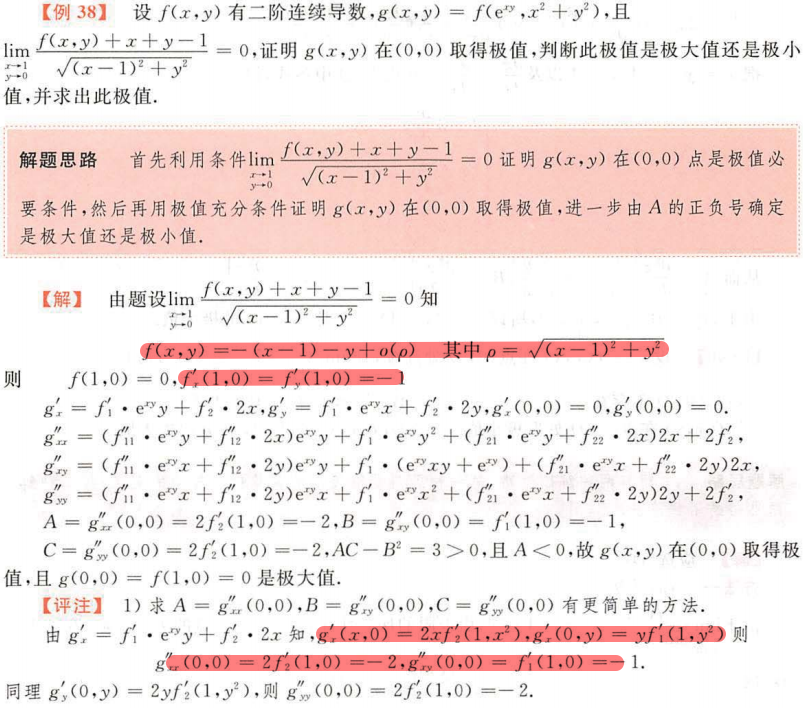 【例 38】 设 f(x,y) 有二阶连续导数,g(x,y) = f(e^{xy},x² + y²),且
lim_{x→1, y→0} \frac{f(x,y) + x + y − 1}{\sqrt{(x − 1)² + y²}} = 0,证明 g(x,y) 在(0,0) 取得极值,判断此极值是极大值还是极小
值,并求出此极值.
解题思路 首先利用条件lim_{x→1, y→0} \frac{f(x,y) + x + y − 1}{\sqrt{(x − 1)² + y²}} = 0 证明 g(x,y) 在(0,0) 点是极值必
要条件,然后再用极值充分条件证明 g(x,y) 在(0,0) 取得极值,进一步由 A 的正负号确定
是极大值还是极小值.
【解】 由题设lim_{x→1, y→0} \frac{f(x,y) + x + y − 1}{\sqrt{(x − 1)² + y²}} = 0 知
f(x,y) =− (x − 1) − y + o(ρ) 其中 ρ = \sqrt{(x − 1)² + y²}
则 f(1,0) = 0,f′_x(1,0) = f′_y(1,0) =− 1
g′_x = f′_1 • e^{xy}y + f′_2 • 2x,g′_y = f′_1 • e^{xy}x + f′_2 • 2y,g′_x(0,0) = 0,g′_y(0,0) = 0.
g″_{xx} = (f″_{11} • e^{xy}y + f″_{12} • 2x)e^{xy}y + f′_1 • e^{xy}y² + (f″_{21} • e^{xy}y + f″_{22} • 2x)2x + 2f′_2,
g″_{xy} = (f″_{11} • e^{xy}x + f″_{12} • 2y)e^{xy}y + f′_1 • (e^{xy}xy + e^{xy}) + (f″_{21} • e^{xy}x + f″_{22} • 2y)2x,
g″_{yy} = (f″_{11} • e^{xy}x + f″_{12} • 2y)e^{xy}x + f′_1 • e^{xy}x² + (f″_{21} • e^{xy}x + f″_{22} • 2y)2y + 2f′_2,
A = g″_{xx}(0,0) = 2f′_2(1,0) =− 2,B = g″_{xy}(0,0) = f′_1(1,0) =− 1,
C = g″_{yy}(0,0) = 2f′_2(1,0) =− 2,AC − B² = 3 > 0,且 A < 0,故 g(x,y) 在(0,0) 取得极
值,且 g(0,0) = f(1,0) = 0 是极大值.
【评注】 1) 求 A = g″_{xx}(0,0),B = g″_{xy}(0,0),C = g″_{yy}(0,0) 有更简单的方法.
由 g′_x = f′_1 • e^{xy}y + f′_2 • 2x 知,g′_x(x,0) = 2xf′_2(1,x²),g′_x(0,y) = yf′_1(1,y²) 则
g″_{xx}(0,0) = 2f′_2(1,0) =− 2,g″_{xy}(0,0) = f′_1(1,0) =− 1.
同理 g′_y(0,y) = 2yf′_2(1,y²),则 g″_{yy}(0,0) = 2f′_2(1,0) =− 2.